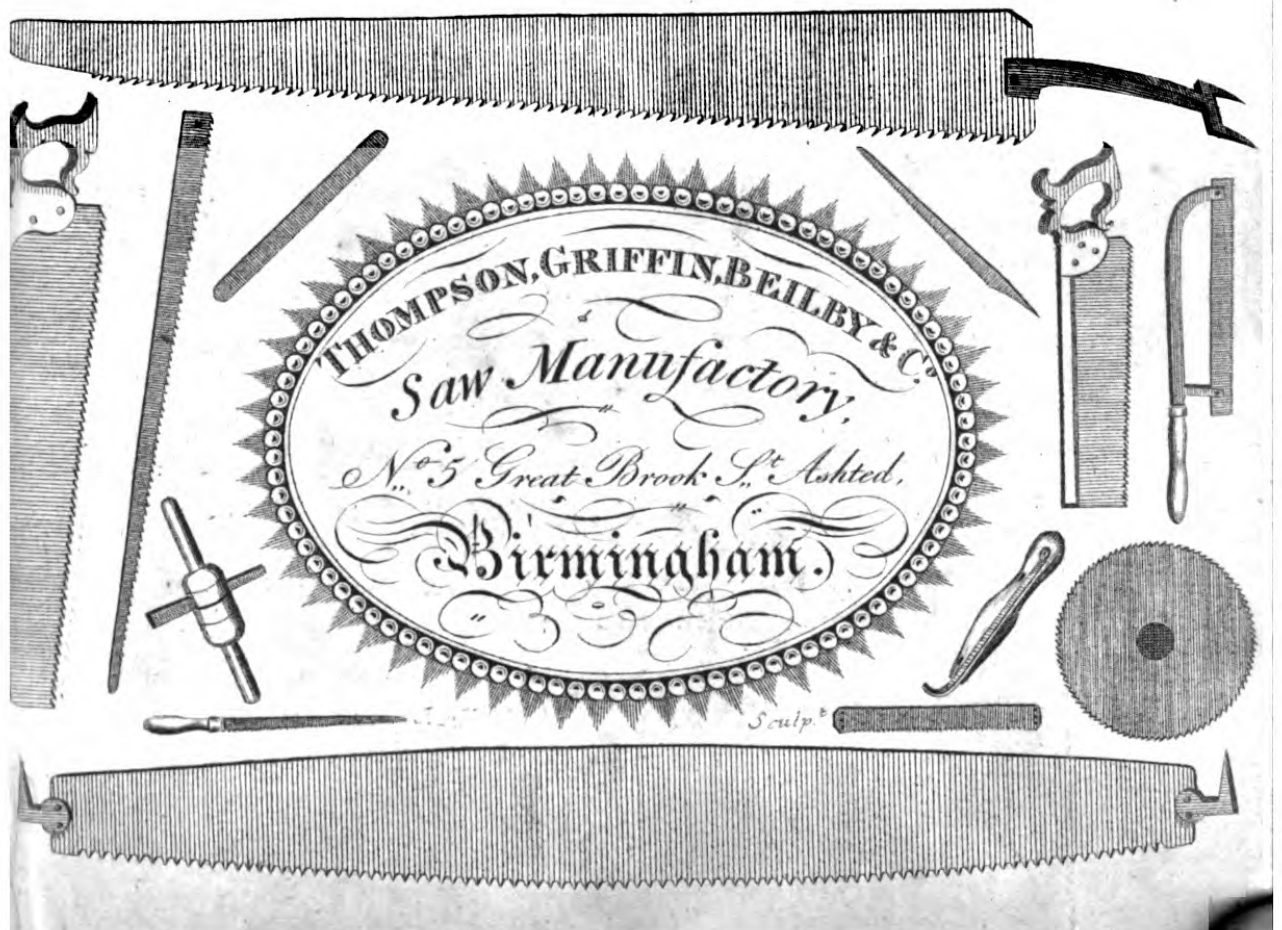 THOMPSON, GRIFFIN, BEILBY & Cº.
Saw Manufactory,
Nº 5 Great Brook Sᵗ Ashted,
Birmingham.
Sculp.ᵗ